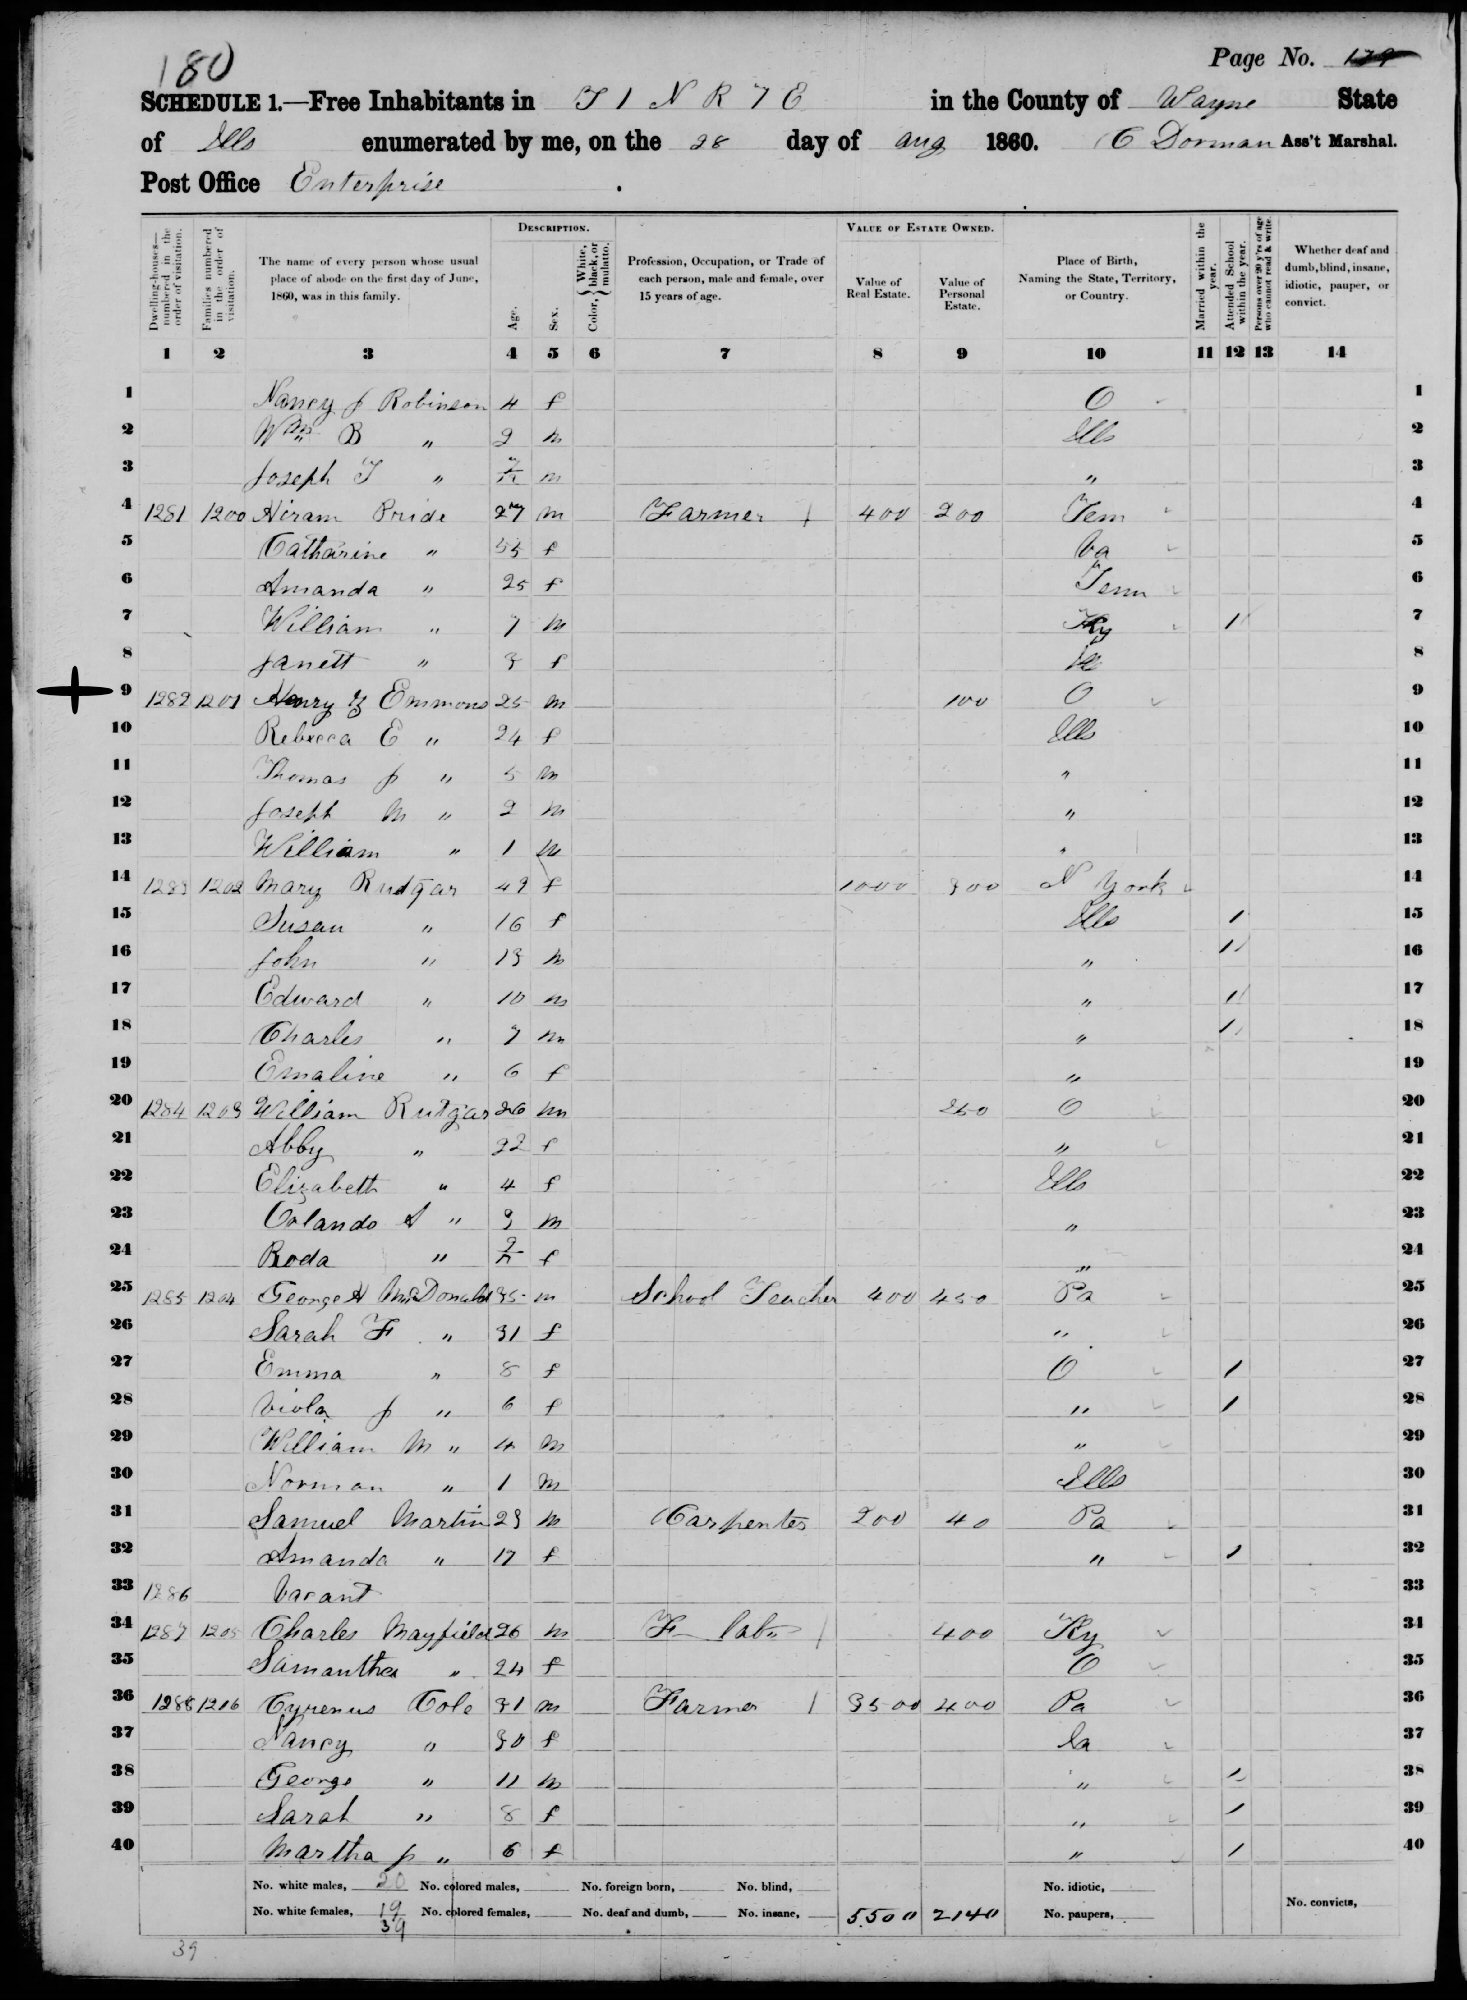 180
Page No. 179
SCHEDULE 1.—Free Inhabitants in T 1 N R 7 E in the County of Wayne State
of Ills enumerated by me, on the 28 day of Aug 1860. C Dorman Ass't Marshal.
Post Office Enterprise
Dwelling-houses—numbered in the order of visitation.
Families numbered in the order of visitation.
The name of every person whose usual place of abode on the first day of June, 1860, was in this family.
DESCRIPTION.
Age.
Sex.
Color, { White, black, or mulatto.
Profession, Occupation, or Trade of each person, male and female, over 15 years of age.
VALUE OF ESTATE OWNED.
Value of Real Estate.
Value of Personal Estate.
Place of Birth, Naming the State, Territory, or Country.
Married within the year.
Attended School within the year.
Persons over 20 y'rs of age who cannot read & write.
Whether deaf and dumb, blind, insane, idiotic, pauper, or convict.
1 2 3 4 5 6 7 8 9 10 11 12 13 14
1 Nancy J Robinson 4 f O 1
2 Wm B " 2 m Ills 2
3 Joseph T " m " 3
4 1281 1200 Hiram Pride 27 m Farmer 400 200 Tem 4
5 Catharine " 55 f Va 5
6 Amanda " 25 f Tenn 6
7 William " 7 m Ky 1 7
8 Janett " 3 f 8
9 1282 1201 Henry Emmons 25 m 100 O 9
10 Rebecca E " 24 f Ills 10
11 Thomas J " 5 m " 11
12 Joseph M " 2 m " 12
13 William " 1 m " 13
14 1283 1202 Mary Rudgar 49 f 1000 300 N York 14
15 Susan " 16 f Ills 1 15
16 John " 13 m " 1 16
17 Edward " 10 m " 1 17
18 Charles " 7 m " 1 18
19 Emaline " 6 f " 19
20 1284 1203 William Rutgar 26 m 250 O 20
21 Abby " 22 f " 21
22 Elizabeth " 4 f Ills 22
23 Orlando S " 3 m " 23
24 Roda " f " 24
25 1285 1204 George H McDonald 35 m School Teacher 400 450 Pa 25
26 Sarah F " 31 f " 26
27 Emma " 8 f O 1 27
28 Viola J " 6 f " 1 28
29 William M " 4 m " 29
30 Norman " 1 m Ills 30
31 Samuel Martin 23 m Carpenter 200 40 Pa 31
32 Amanda " 17 f " 1 32
33 1286 Vacant 33
34 1287 1205 Charles Mayfield 26 m F labor 400 Ky 34
35 Samantha " 24 f O 35
36 1288 1206 Cyrenus Cole 31 m Farmer 3500 400 Pa 36
37 Nancy " 30 f Ia 37
38 George " 11 m " 1 38
39 Sarah " 8 f " 1 39
40 Martha J " 6 f " 1 40
No. white males, 20 No. colored males, No. foreign born, No. blind, No. idiotic,
No. white females, 19 No. colored females, No. deaf and dumb, No. insane, 5500 2140 No. paupers, No. convicts,
39
39